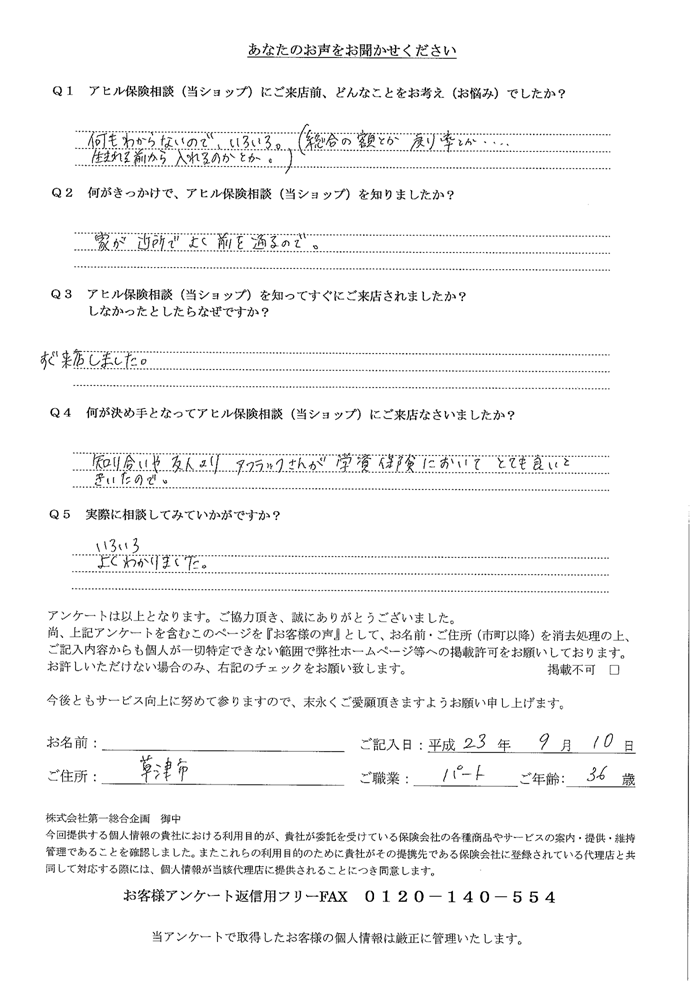 あなたのお声をお聞かせください
Q1 アヒル保険相談（当ショップ）にご来店前、どんなことをお考え（お悩み）でしたか？
何もわからないので、いろいろ。（総合の額とか 戻り率とか・・・・
生まれる前から 入れるのかとか。）
Q2 何がきっかけで、アヒル保険相談（当ショップ）を知りましたか？
家が 近所で よく 前を 通るので。
Q3 アヒル保険相談（当ショップ）を知ってすぐにご来店されましたか？
しなかったとしたらなぜですか？
すぐ来店しました。
Q4 何が決め手となってアヒル保険相談（当ショップ）にご来店なさいましたか？
知り合いや 友人より アフラックさんが 学資保険において とても良いと
きいたので。
Q5 実際に相談してみていかがですか？
いろいろ
よくわかりました。
アンケートは以上となります。ご協力頂き、誠にありがとうございました。
尚、上記アンケートを含むこのページを『お客様の声』として、お名前・ご住所（市町以降）を消去処理の上、
ご記入内容からも個人が一切特定できない範囲で弊社ホームページ等への掲載許可をお願いしております。
お許しいただけない場合のみ、右記のチェックをお願い致します。 掲載不可 □
今後ともサービス向上に努めて参りますので、末永くご愛顧頂きますようお願い申し上げます。
お名前： ご記入日：平成 23 年 9 月 10 日
ご住所： 草津市 ご職業： パート ご年齢： 36 歳
株式会社第一総合企画 御中
今回提供する個人情報の貴社における利用目的が、貴社が委託を受けている保険会社の各種商品やサービスの案内・提供・維持
管理であることを確認しました。またこれらの利用目的のために貴社がその提携先である保険会社に登録されている代理店と共
同して対応する際には、個人情報が当該代理店に提供されることにつき同意します。
お客様アンケート返信用フリーFAX 0120－140－554
当アンケートで取得したお客様の個人情報は厳正に管理いたします。